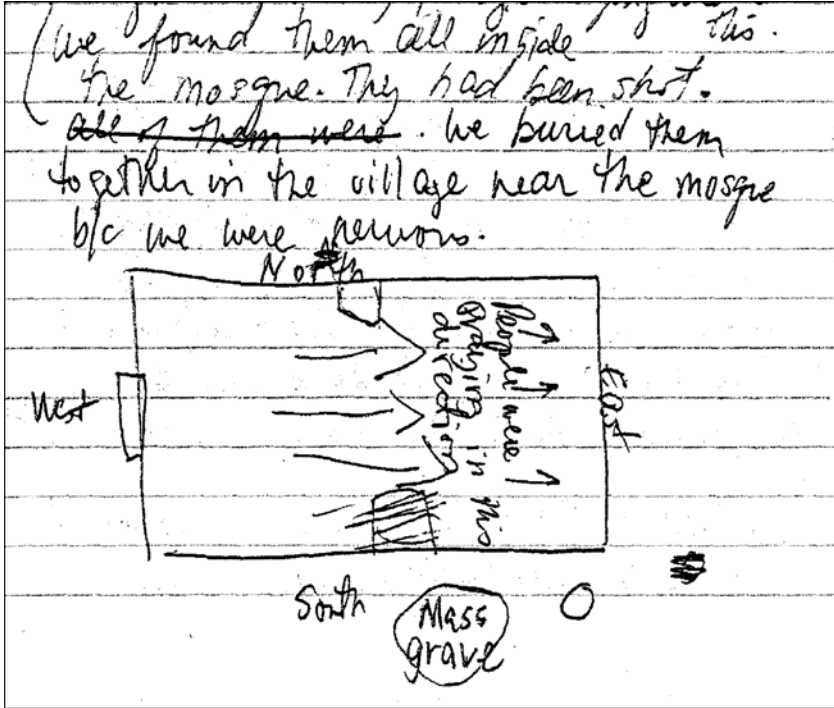 we found them all inside this.
the mosque. They had been shot.
all of them were. We buried them
together in the village near the mosque
b/c we were nervous.
North
West
People were
praying in this
direction
East
South
Mass
grave